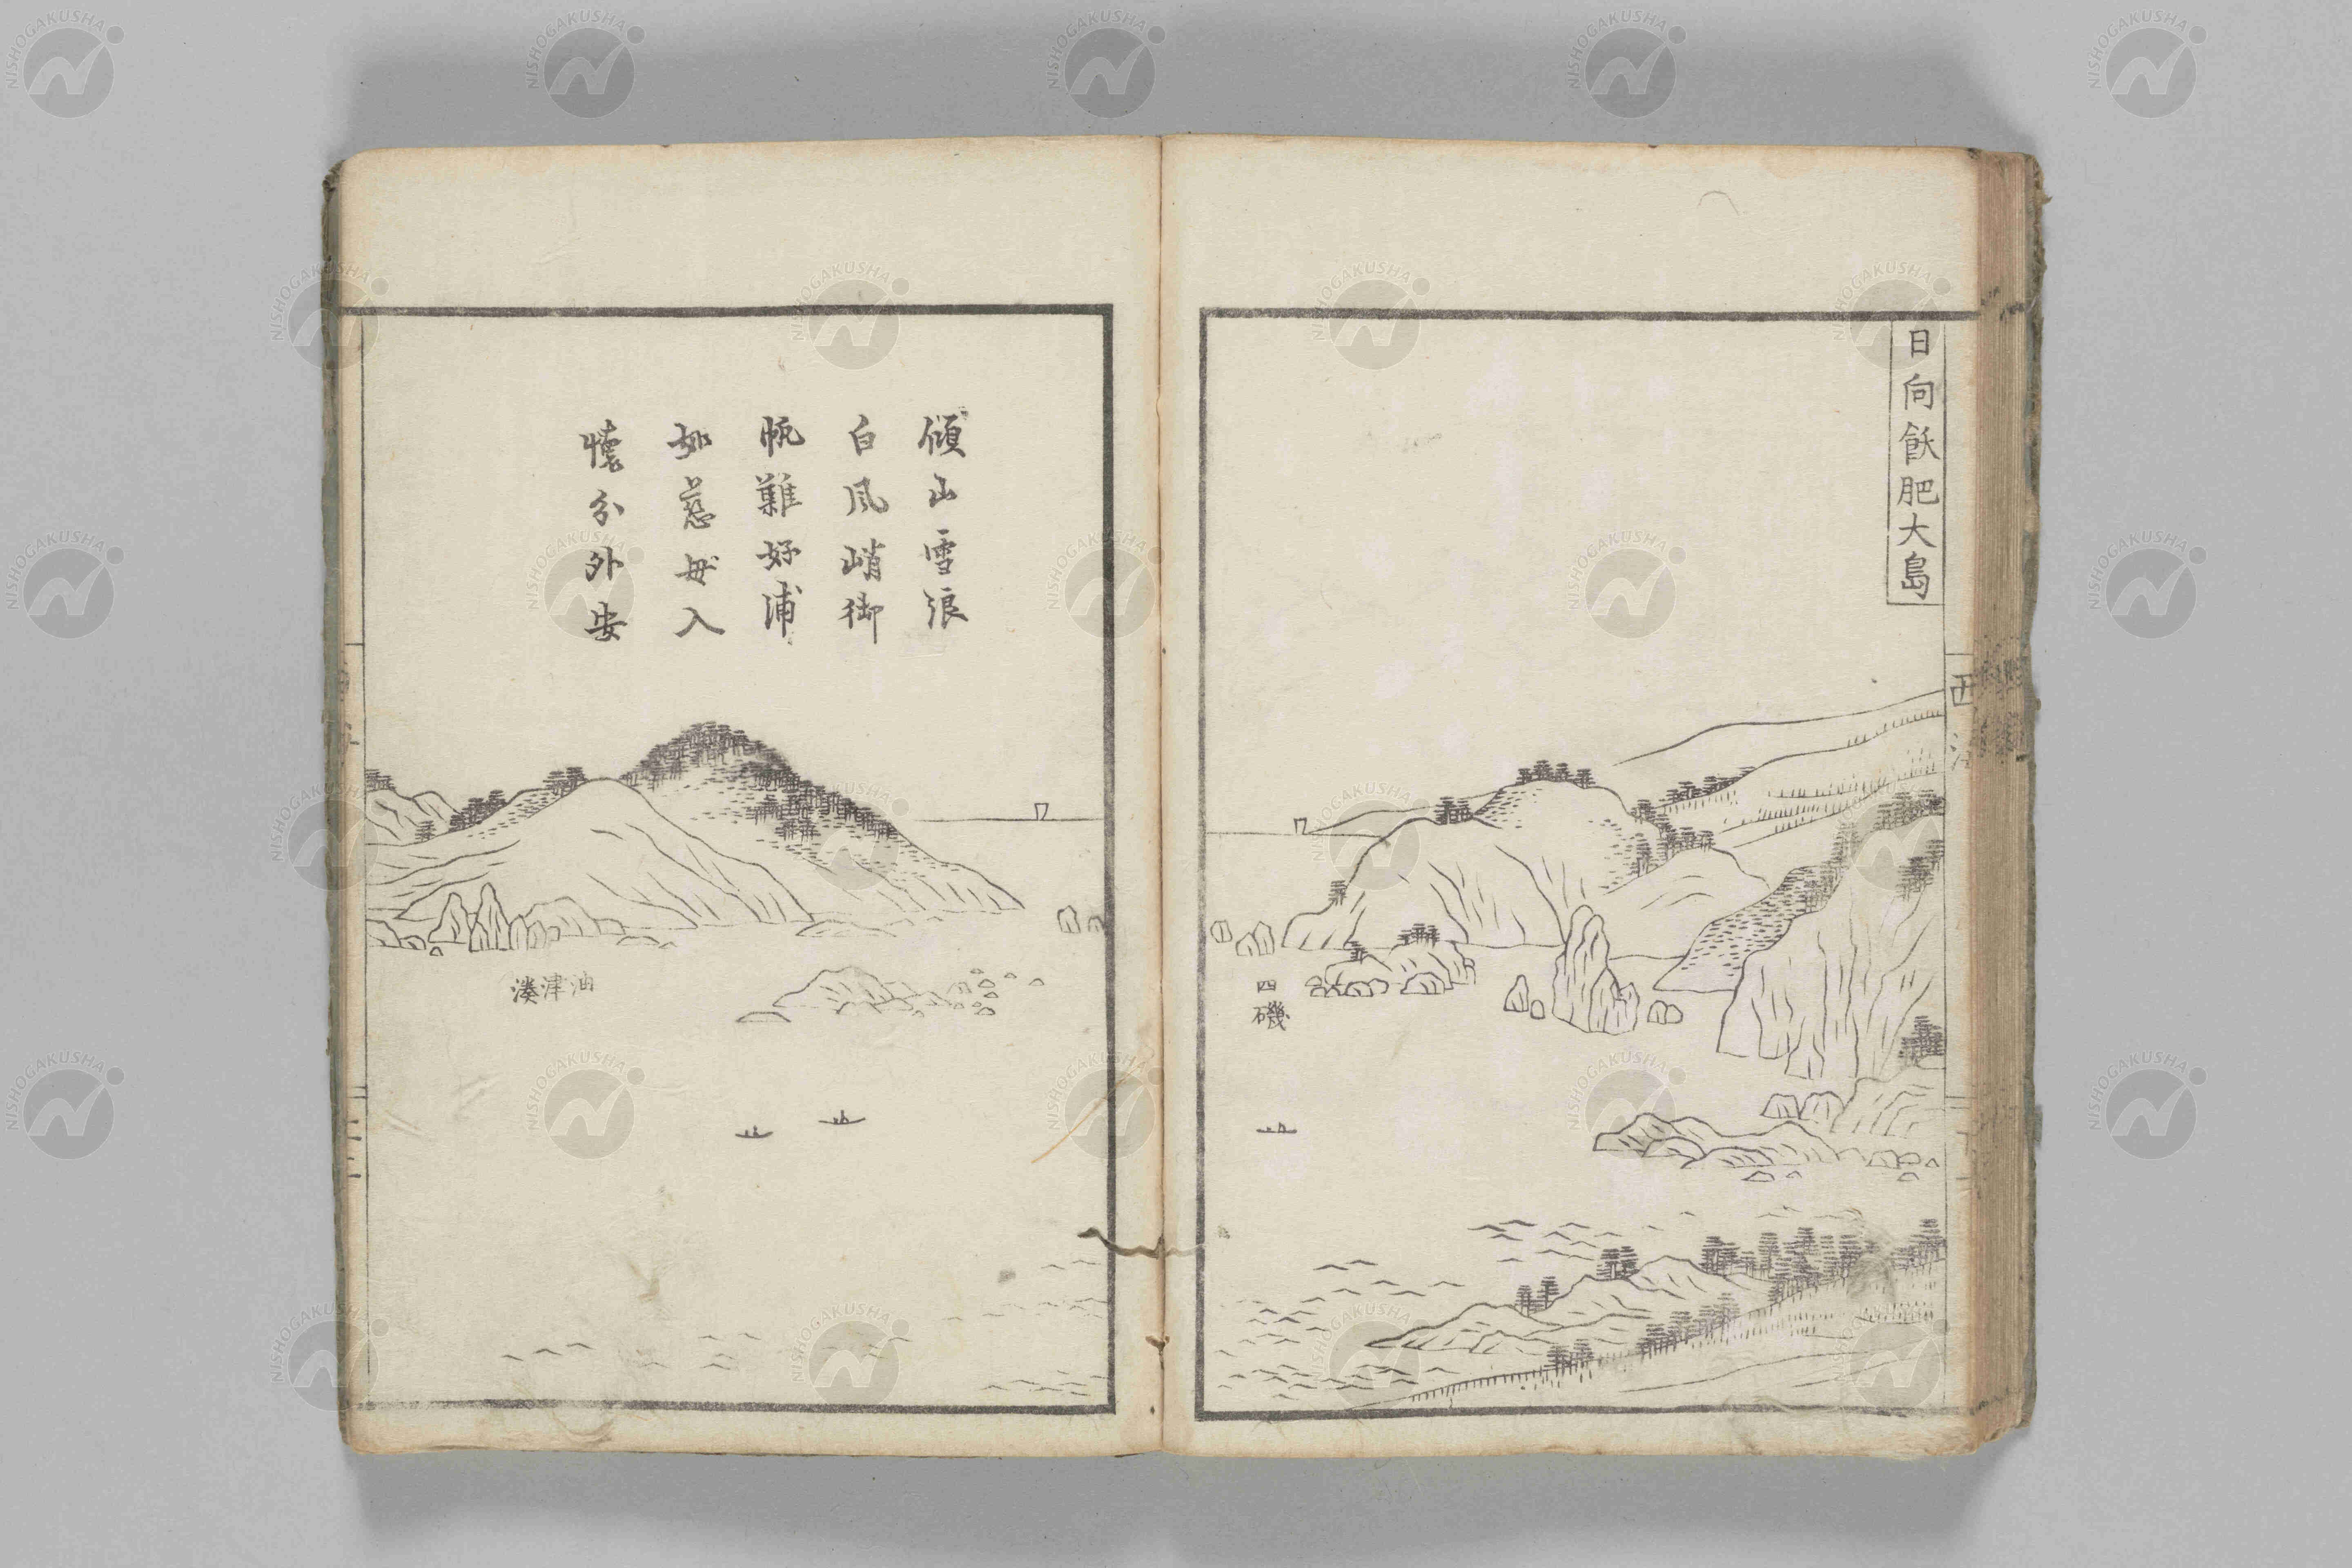 日向飫肥大島
西
四磯
傾山雪浪
白風峭御
帆難好浦
如慈母入
懷分外安
油津湊
NISHOGAKUSHA